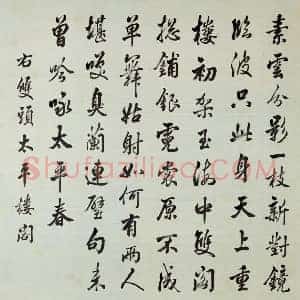 素雲分影一枝新對鏡
臨波只此身天上重
樓初架玉海中雙閣
總鋪銀霓裳原不成
單舞姑射如何有兩人
堪嘆臭蘭連璧句未
曾吟詠太平春
右雙頭太平樓閣
Shufaziliao.com